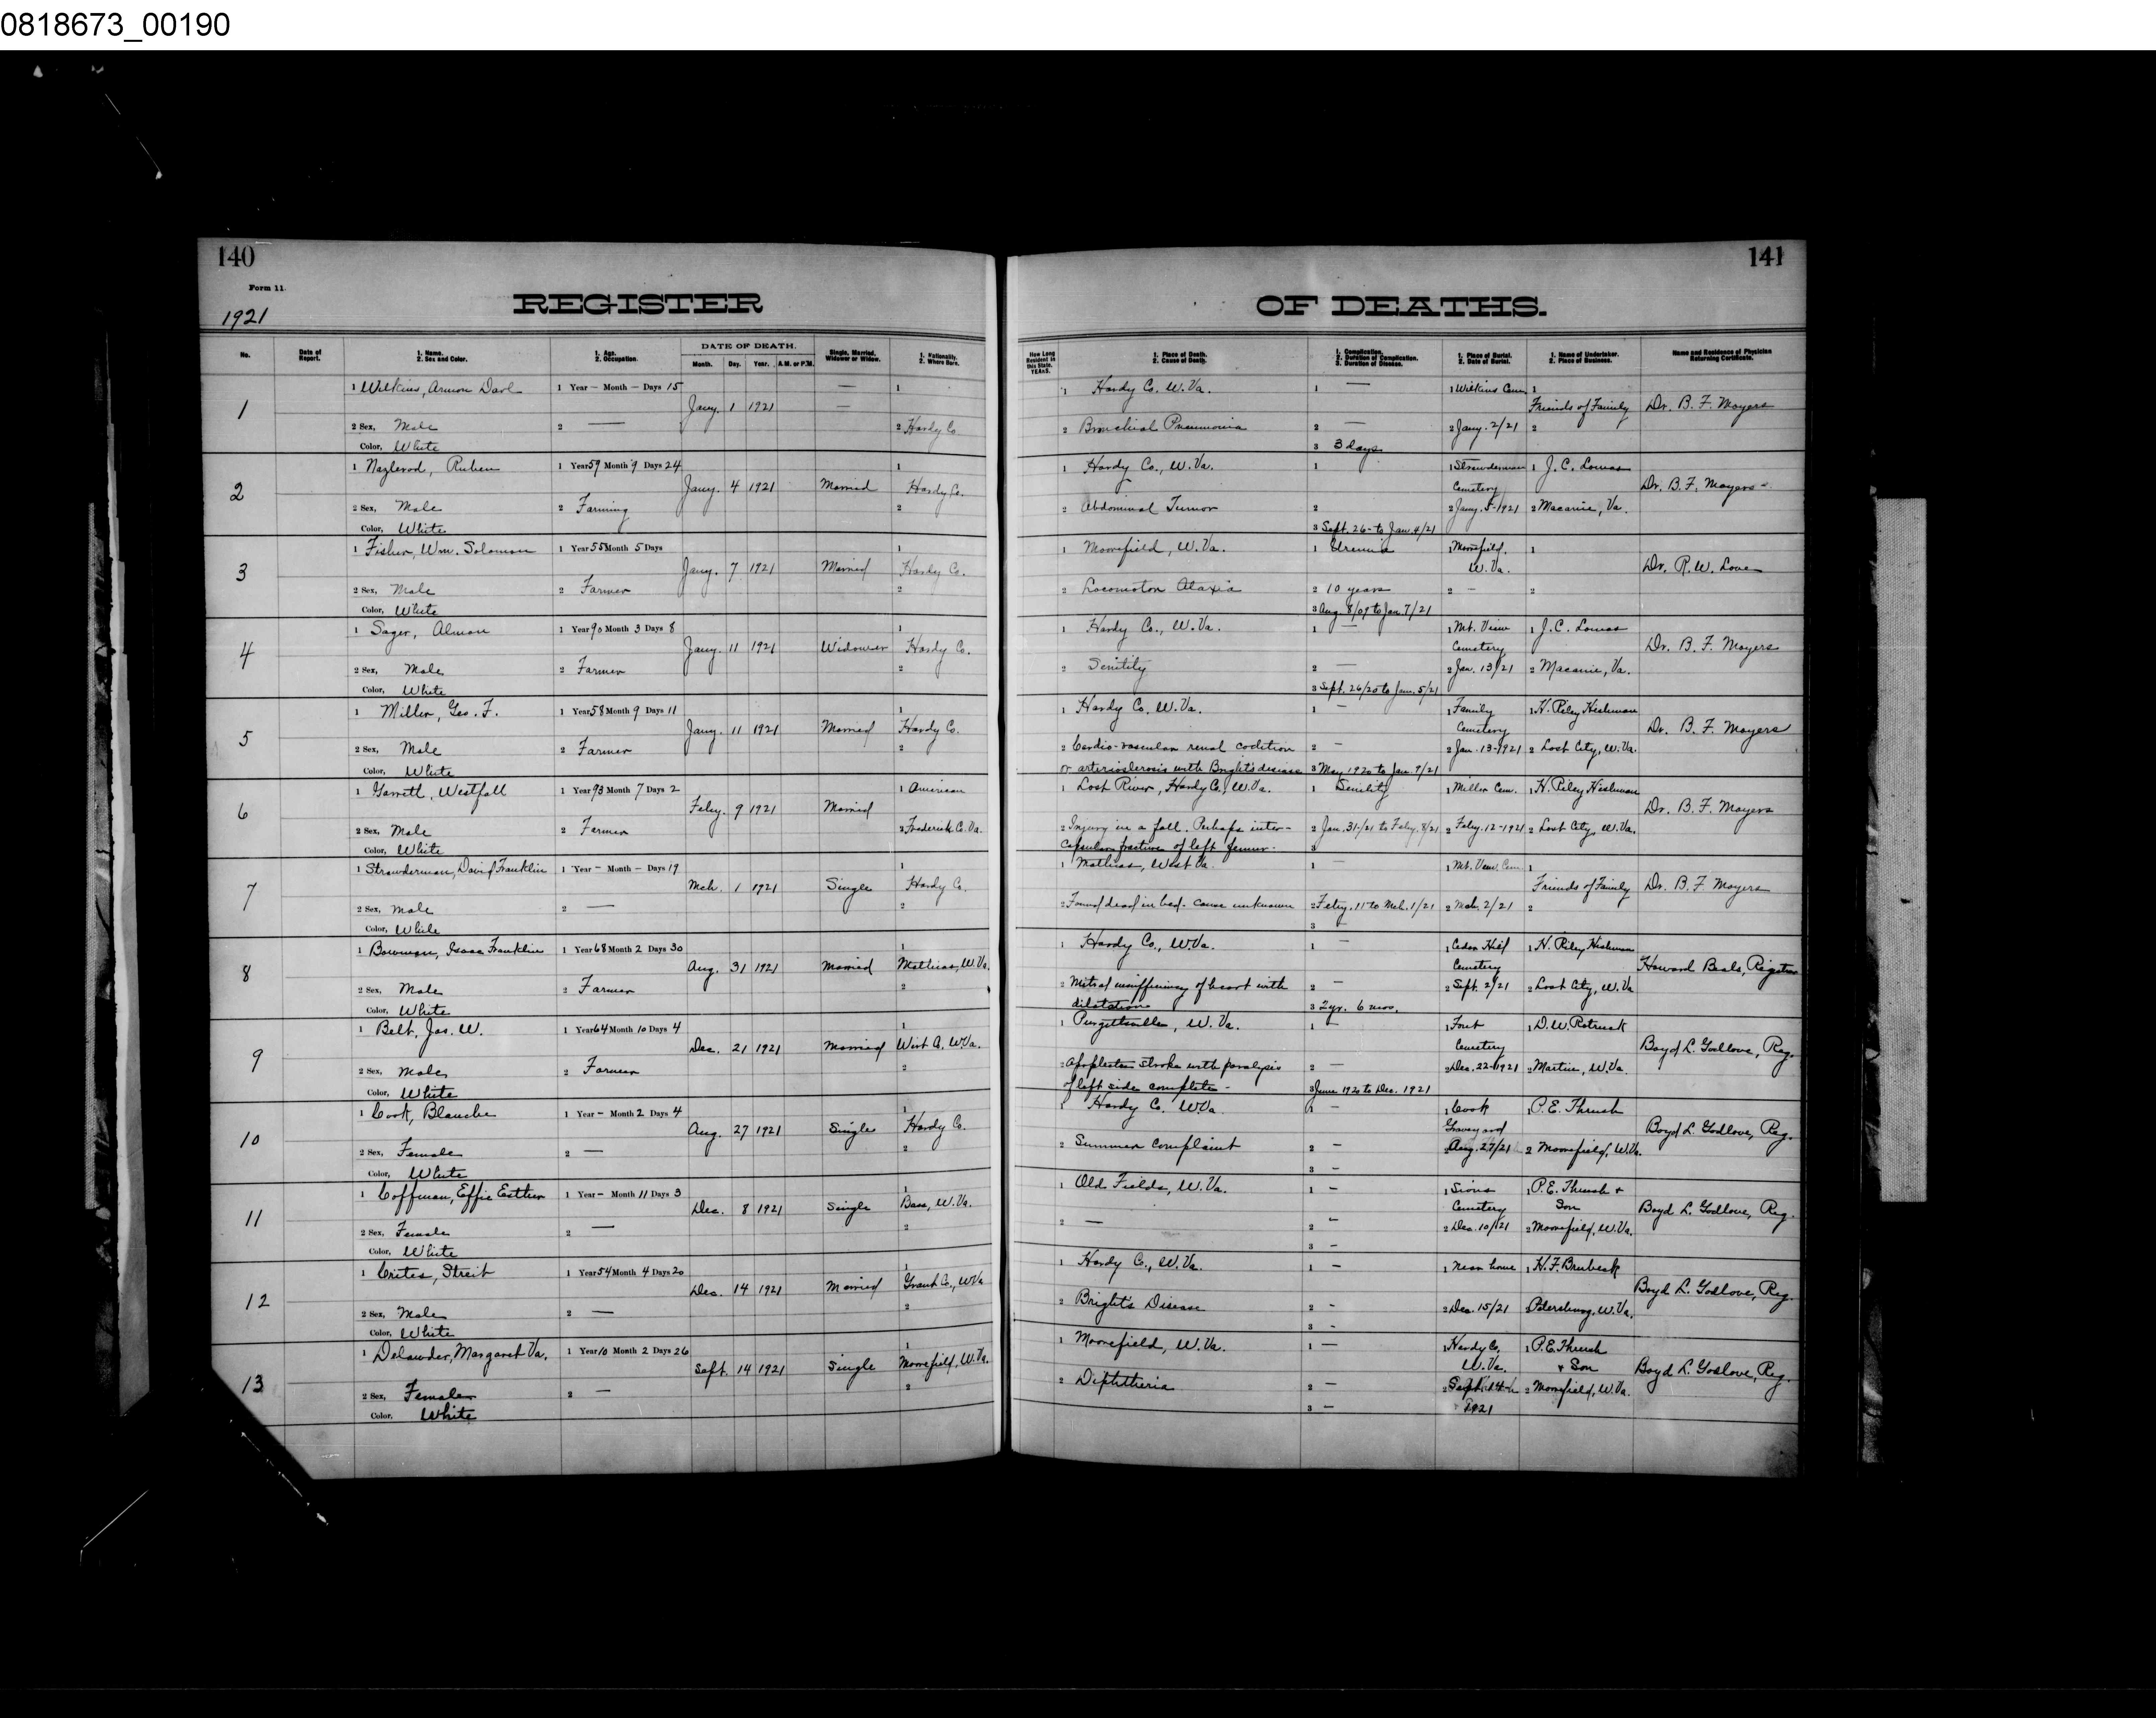 0818673_00190
140
Form 11.
1921
REGISTER
No.
Date of Report.
1. Name. 2. Sex and Color.
1. Age. 2. Occupation.
DATE OF DEATH.
Month. Day. Year. A.M. or P.M.
Single, Married, Widower or Widow.
1. Nationality. 2. Where Born.
1
1 Wilkins, Armon Darl 1 Year — Month — Days 15 — 1
Jany. 1 1921 —
2 Sex, Male 2 — 2 Hardy Co.
Color, White
2
1 Year 59 Month 9 Days 24 1
Jany. 4 1921 Married Hardy Co.
2 Sex, Male 2 Farming 2
Color, White
3
1 Fisher, Wm. Solomon 1 Year 55 Month 5 Days 1
Jany. 7 1921 Married Hardy Co.
2 Sex, Male 2 Farmer 2
Color, White
4
1 Sager, Almon 1 Year 90 Month 3 Days 8 1
Jany. 11 1921 Widower Hardy Co.
2 Sex, Male 2 Farmer 2
Color, White
5
1 Miller, Geo. F. 1 Year 58 Month 9 Days 11 1
Jany. 11 1921 Married Hardy Co.
2 Sex, Male 2 Farmer 2
Color, White
6
1 Garrett, Westfall 1 Year 93 Month 7 Days 2 1 American
Feby. 9 1921 Married
2 Sex, Male 2 Farmer 2 Frederick C. Va.
Color, White
7
1 Strawderman, David Franklin 1 Year — Month — Days 19 1
Mch. 1 1921 Single Hardy Co.
2 Sex, Male 2 — 2
Color, White
8
1 Bowman, Isaac Franklin 1 Year 68 Month 2 Days 30 1
Aug. 31 1921 Married Mathias, W. Va.
2 Sex, Male 2 Farmer 2
Color, White
9
1 Belt, Jas. W. 1 Year 64 Month 10 Days 4 1
Dec. 21 1921 Married Wirt Co. W. Va.
2 Sex, Male 2 Farmer 2
Color, White
10
1 Cook, Blanche 1 Year — Month 2 Days 4 1
Aug. 27 1921 Single Hardy Co.
2 Sex, Female 2 — 2
Color, White
11
1 Coffman, Effie Esther 1 Year — Month 11 Days 3 1
Dec. 8 1921 Single Bass, W. Va.
2 Sex, Female 2 — 2
Color, White
12
1 Crites, Streit 1 Year 54 Month 4 Days 20 1
Dec. 14 1921 Married Grant Co., W. Va.
2 Sex, Male 2 — 2
Color, White
13
1 Delawder, Margaret Va. 1 Year 10 Month 2 Days 26 1
Sept. 14 1921 Single Moorefield, W. Va.
2 Sex, Female 2 — 2
Color, White
141
OF DEATHS.
How Long Resident in this State. YEARS.
1. Place of Death. 2. Cause of Death.
1. Complication. 2. Duration of Complication. 3. Duration of Disease.
1. Place of Burial. 2. Date of Burial.
1. Name of Undertaker. 2. Place of Business.
Name and Residence of Physician Returning Certificate.
1 Hardy Co. W. Va. 1 — 1 Wilkins Cem. 1
Friends of Family Dr. B. F. Moyers
2 Bronchial Pneumonia 2 — 2 Jany. 2/21 2
3 3 days
1 Hardy Co., W. Va. 1 1 Strawderman 1 J. C. Lomas
Cemetery Dr. B. F. Moyers
2 Abdominal Tumor 2 2 Jany. 5-1921 2 Macanie, Va.
3 Sept. 26- to Jan. 4/21
1 Moorefield, W. Va. 1 Uremia 1 Moorefield, 1
W. Va. Dr. R. W. Love
2 Locomoton Ataxia 2 10 years 2 — 2
3 Aug. 8/09 to Jan 7/21
1 Hardy Co., W. Va. 1 — 1 Mt. View 1 J. C. Lomas
Cemetery Dr. B. F. Moyers
2 Senility 2 — 2 Jan. 13/21 2 Macanie, Va.
3 Sept. 26/20 to Jan. 5/21
1 Hardy Co. W. Va. 1 — 1 Family 1 H. Riley Heshman
Cemetery Dr. B. F. Moyers
2 Cardio-vascular renal codition 2 — 2 Jan. 13-1921 2 Lost City, W. Va.
or arteriosclerosis with Bright's disease 3 May 1920 to Jan. 9/21
1 Lost River, Hardy Co., W. Va. 1 Senility 1 Miller Cem. 1 H. Riley Heshman
Dr. B. F. Moyers
2 Injury in a fall. Perhaps inter- 2 Jan. 31-/21 to Feby. 8/21 2 Feby. 12-1921 2 Lost City, W. Va.
capsular fracture of left femur. 3
1 Mathias, West Va. 1 — 1 Mt. View Cem. 1
Friends of Family Dr. B. F. Moyers
2 Found dead in bed. cause unknown 2 Feby. 11 to Mch. 1/21 2 Mch. 2/21 2
3 —
1 Hardy Co., W. Va. 1 — 1 Cedar Hill 1 H. Riley Heshman
Cemetery Howard Beals, Registrar
2 Mitral insufficiency of heart with 2 — 2 Sept. 2/21 2 Lost City, W. Va
dilatation 3 2 yr. 6 mos.
1 Purgittsville, W. Va. 1 — 1 Fout 1 D. W. Rotruck
Cemetery Boyd L. Godlove, Reg.
2 Apoplexies stroke with paralysis 2 — 2 Dec. 22-1921 2 Martin, W. Va.
of left side complete - 3 June 1920 to Dec. 1921
1 Hardy Co. W. Va 1 — 1 Cook 1 P. E. Thrush
Graveyard Boyd L. Godlove, Reg.
2 Summer Complaint 2 — 2 Aug. 27/21 2 Moorefield, W. Va.
3 —
1 Old Fields, W. Va. 1 — 1 Sions 1 P. E. Thrush +
Cemetery Son Boyd L. Godlove, Reg.
2 — 2 — 2 Dec. 10/21 2 Moorefield, W. Va.
3 —
1 Hardy Co., W. Va. 1 — 1 near home 1 H. F. Brubeck
Boyd L. Godlove, Reg.
2 Bright's Disease 2 — 2 Dec. 15/21 2 Petersburg, W. Va.
3 —
1 Moorefield, W. Va. 1 — 1 Hardy Co, 1 P. E. Thrush
W. Va. + Son Boyd L. Goslove, Reg.
2 Diphtheria 2 — 2 Sept. 14- 2 Moorefield, W. Va.
3 — 1921